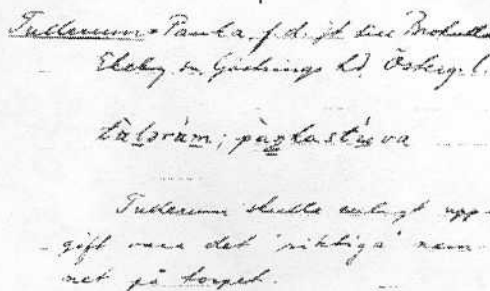 Tullerum = Panka f.d. jt till Brokulla
Ekeby sn, Göstrings hd. Österg. l.
tùlərúm; pàŋkastúva
Tullerum skulle enligt upp-
gift vara det 'riktiga' nam-
net på torpet.